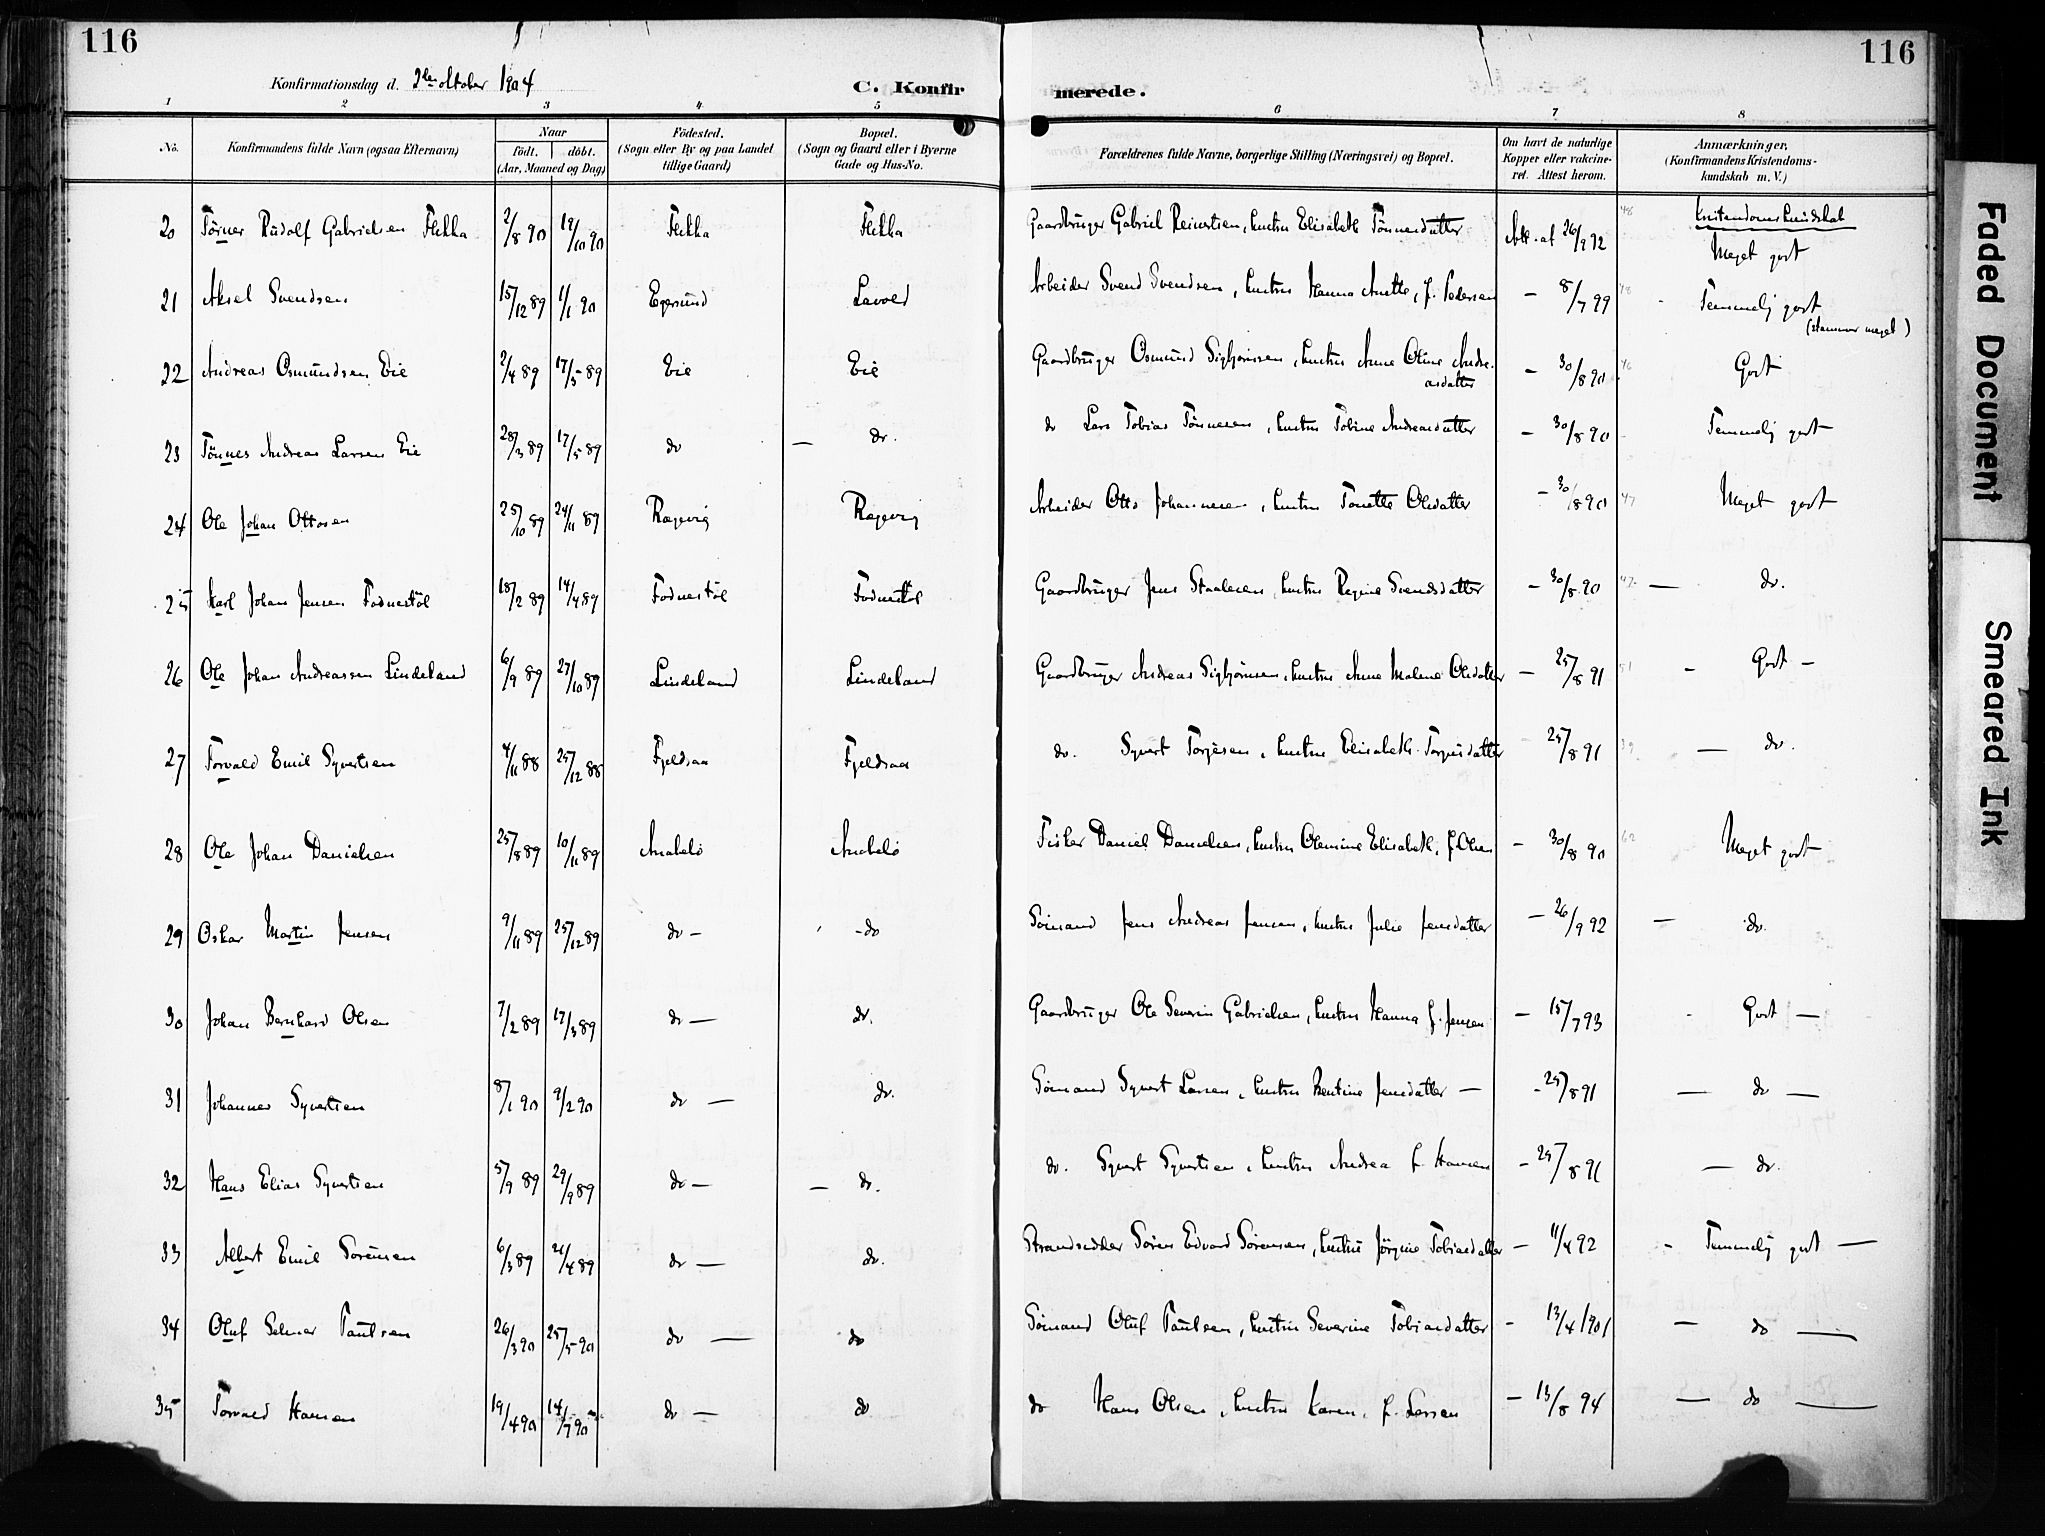 116
116
Konfirmationsdag d. 2den oktober 1904
C. Konfir
merede.
1 2 3 4 5 6 7 8
No.
Konfirmandens fulde Navn (ogsaa Efternavn)
Naar
födt. döbt.
(Aar, Maaned og Dag)
Födested.
(Sogn eller By og paa Landet
tillige Gaard)
Bopæl.
(Sogn og Gaard eller i Byerne
Gade og Hus-No.
Forældrenes fulde Navne, borgerlige Stilling (Næringsvei) og Bopæl.
Om havt de naturlige
Kopper eller vakcine-
ret. Attest herom.
Anmærkninger,
(Konfirmandens Kristendoms-
kundskab m. V.)
Kristendomskundskab
20 Tönner Rudolf Gabrielsen Flikka 2/8 90 19/10 90 Flikka Flikka Gaardbruger Gabriel Reinertsen, hustru Elisabeth Tönnesdatter Att. af 26/9 92 Meget godt
21 Aksel Svendsen 15/12 89 1/1 90 Egersund Lavold Arbeider Svend Svendsen, hustru Hanna Anette, f. Pedersen — 8/7 99 Temmelig godt
(stammer meget)
22 Andreas Osmundsen Eie 2/4 89 17/5 89 Eie Eie Gaardbruger Osmund Sigbjörnsen, hustru Anne Oline Andre-
asdatter — 30/8 90 Godt
23 Tönnes Andreas Larsen Eie 28/3 89 17/5 89 do — do. do Lars Tobias Tönnesen, hustru Tobine Andreasdatter — 30/8 90 Temmelig godt
24 Ole Johan Ottosen 25/10 89 24/11 89 Rægevig Rægevig Arbeider Otto Johannesen, hustru Tonette Olsdatter — 30/8 90 Meget godt
25 Karl Johan Jensen Fodnestöl 18/2 89 14/4 89 Fodnestöl Fodnestöl Gaardbruger Jens Staalesen, hustru Regine Svendsdatter — 30/8 90 — do.
26 Ole Johan Andreassen Lindeland 6/9 89 27/10 89 Lindeland Lindeland Gaardbruger Andreas Sigbjörnsen, hustru Anne Malene Olsdatter — 25/8 91 - Godt —
27 Torvald Emil Syvertsen 4/11 88 25/12 88 Fjeldsaa Fjeldsaa do. Syvert Torjesen, hustru Elisabeth Torjusdatter 25/8 91 — do.
28 Ole Johan Danielsen 25/8 89 10/11 89 Anabelö Anabelö Fisker Daniel Danielsen, hustru Olemine Elisabeth, f. Olsen — 30/8 90 Meget godt
29 Oskar Martin Jensen 9/11 89 25/12 89 do — - do Sömand Jens Andreas Jensen, hustru Julie Jensdatter — 26/9 92 — do.
30 Johan Bernhard Olsen 7/2 89 17/3 89 do — do. Gaardbruger Ole Severin Gabrielsen, hustru Hanna f. Jensen — 15/7 93 - Godt —
31 Johannes Syvertsen 8/1 90 9/2 90 do — do. Sömand Syvert Larsen, hustru Bentine Jensdatter — - 25/8 91 — do —
32 Hans Elias Syvertsen 5/9 89 29/9 89 do — — do. do. Syvert Syvertsen, hustru Andrea f. Hansen — 25/8 91 — do.
33 Albert Emil Sörensen 6/3 89 21/4 89 do — do. Strandsidder Sören Edvard Sörensen, hustru Jörgine Tobiasdatter — 11/4 92 - Temmelig godt —
34 Oluf Selmer Paulsen 26/3 90 25/5 90 do — do Sömand Oluf Paulsen, hustru Severine Tobiasdatter - 13/4 1901 — do —
35 Torvald Hansen 19/4 90 14/7 90 do — do do Hans Olsen, hustru Karen, f. Larsen — 13/8 94 — do —
Faded Document
Smeared Ink